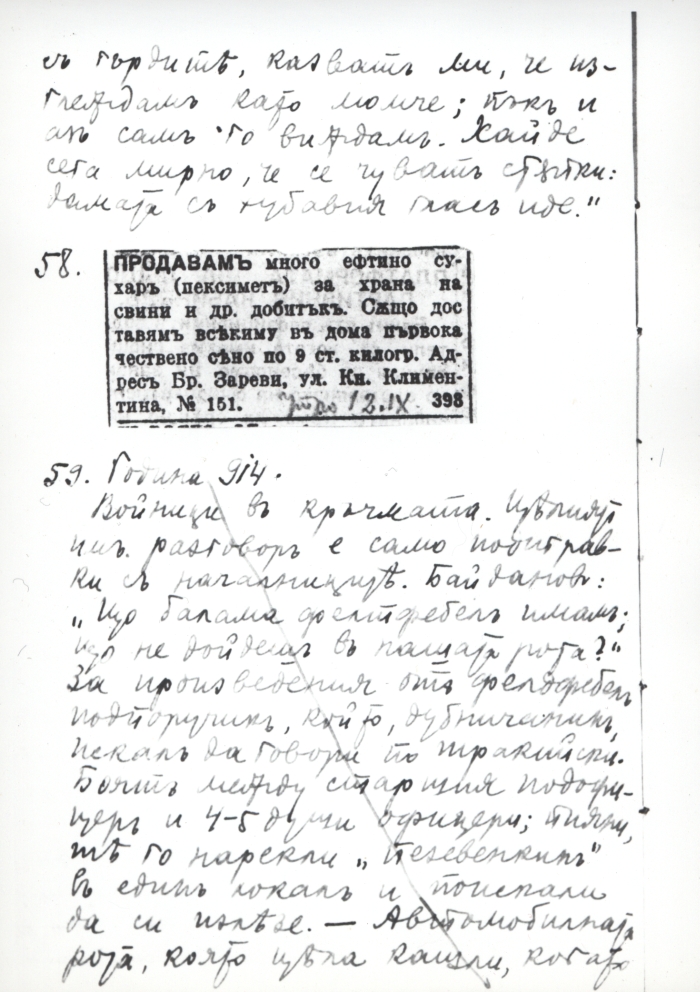 съ гърдитѣ, казватъ ми, че из-
глеждамъ като момче; пъкъ и
азъ самъ го виждамъ. Хайде
сега мирно, че се чуватъ стѫпки:
дамата съ хубавия гласъ иде."
58.
ПРОДАВАМЪ много ефтино су-
харъ (пексиметъ) за храна на
свини и др. добитъкъ. Сѫщо дос
тавямъ всѣкиму въ дома първока
чествено сѣно по 9 ст. килогр. Ад-
ресъ Бр. Зареви, ул. Кн. Климен-
тина, № 151. Утро 12.IX. 398
59. Година 914.
Войници въ кръчмата. Цѣлиятъ
имъ разговоръ е само подигравки
ки съ началницитѣ. Байдановъ:
„Що балама фелдфебелъ имамъ;
що не дойдешъ въ нашата рота?"
За произведения отъ фелдфебелъ
подпоручикъ, който, дубничанинъ,
искалъ да говори по тракийски.
Боятъ между старшия подофи-
церъ и 4-5 души офицери; пияни,
тѣ го нарекли „пезевенкинъ"
въ единъ локалъ и поискали
да си излѣзе. — Автомобилната
рота, която цѣла кашли, когато